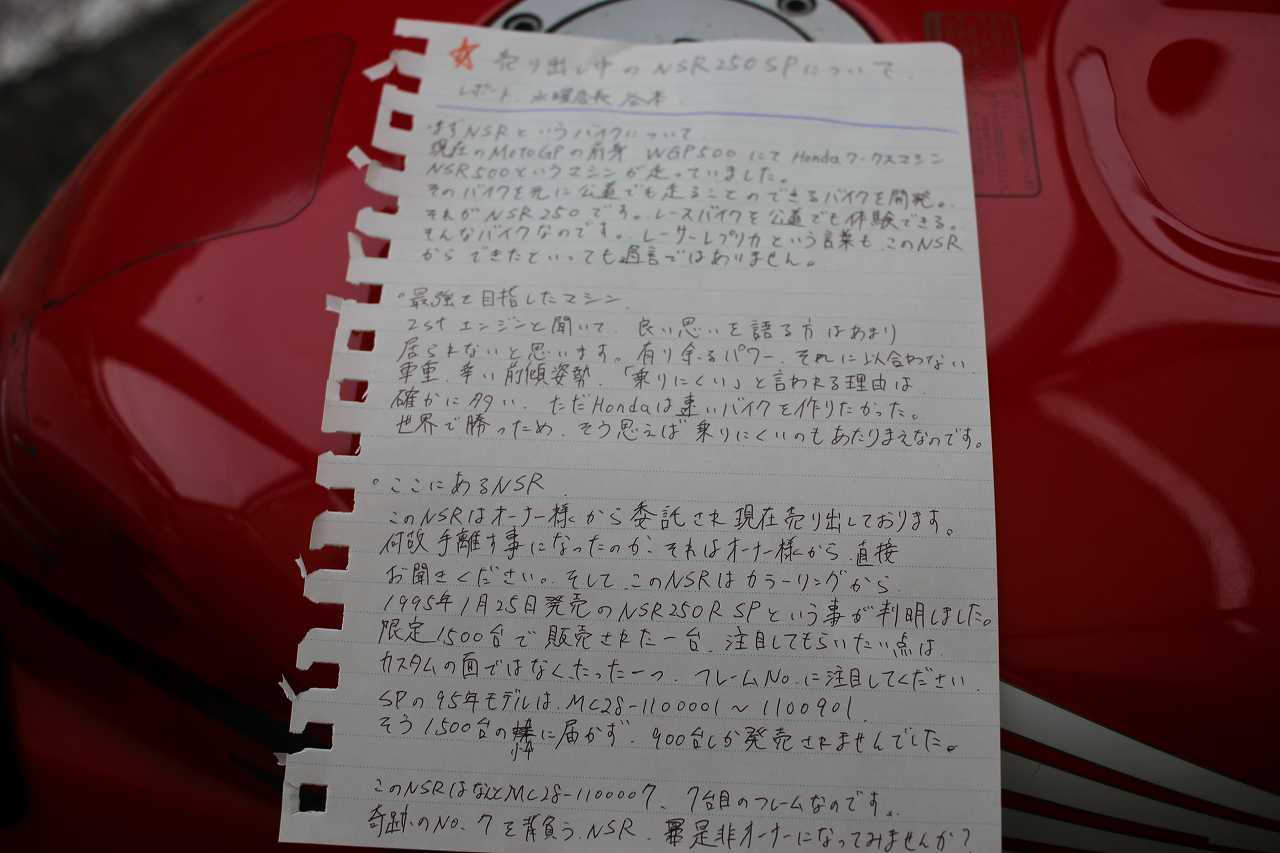 ☆ 売り出し中のNSR250SPについて.
レポート. 水曜店長
まずNSRというバイクについて.
現在のMotoGPの前身 WGP500にてHondaワークスマシン
NSR500というマシンが走っていました。
そのバイクを元に公道でも走ることのできるバイクを開発。
それがNSR250です。レースバイクを公道でも体験できる。
そんなバイクなのです。レーサーレプリカという言葉も、このNSR
からできたといっても過言ではありません。
○最強を目指したマシン.
2stエンジンと聞いて、良い思いを語る方はあまり
居られないと思います。有り余るパワー、それに似合わない
車重、辛い前傾姿勢、「乗りにくい」と言われる理由は
確かに多い、ただHondaは速いバイクを作りたかった。
世界で勝つため、そう思えば乗りにくいのもあたりまえなのです。
○ここにあるNSR.
このNSRはオーナー様から委託され現在売り出しております。
何故手離す事になったのか、それはオーナー様から直接
お聞きください。そして、このNSRはカラーリングから
1995年1月25日発売のNSR250R SPという事が判明しました。
限定1500台で販売された一台、注目してもらいたい点は
カスタムの面ではなく、たった一つ、フレームNo.に注目してください.
SPの95年モデルは、MC28-1100001～1100901.
そう1500台の枠に届かず、900台しか発売されませんでした。
このNSRはなんとMC28-1100007、7台目のフレームなのです。
奇跡のNo.7を背負うNSR、是非オーナーになってみませんか?